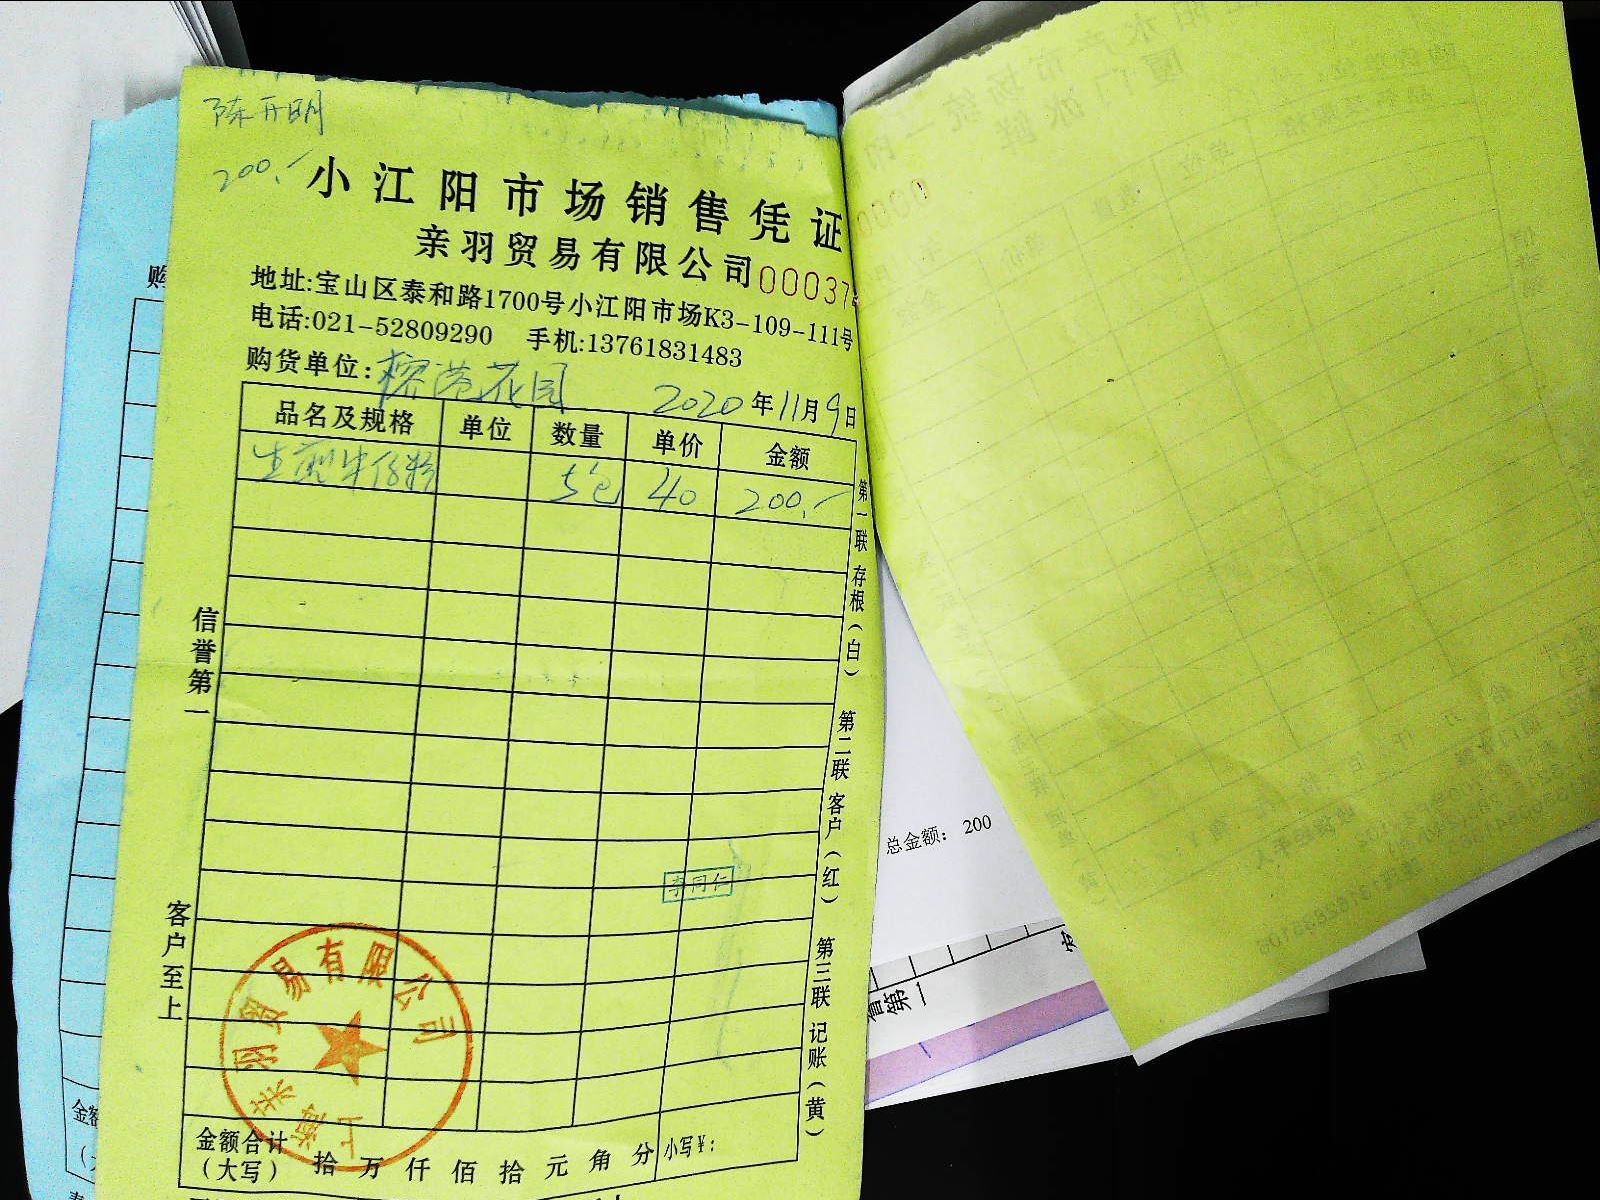 陈开明
200.-
小江阳市场销售凭证
亲羽贸易有限公司 00037
地址:宝山区泰和路1700号小江阳市场K3-109-111号
电话:021-52809290 手机:13761831483
购货单位: 榕港花园
2020年11月9日
品名及规格 单位 数量 单价 金额
生型牛仔粉 5包 40 200.-
第一联 存根(白) 第二联 客户(红) 第三联 记账(黄)
信誉第一 客户至上
李同仁
上海亲羽贸易有限公司
金额合计(大写) 拾 万 仟 佰 拾 元 角 分 小写¥:
购
金额
总金额: 200
誉第一